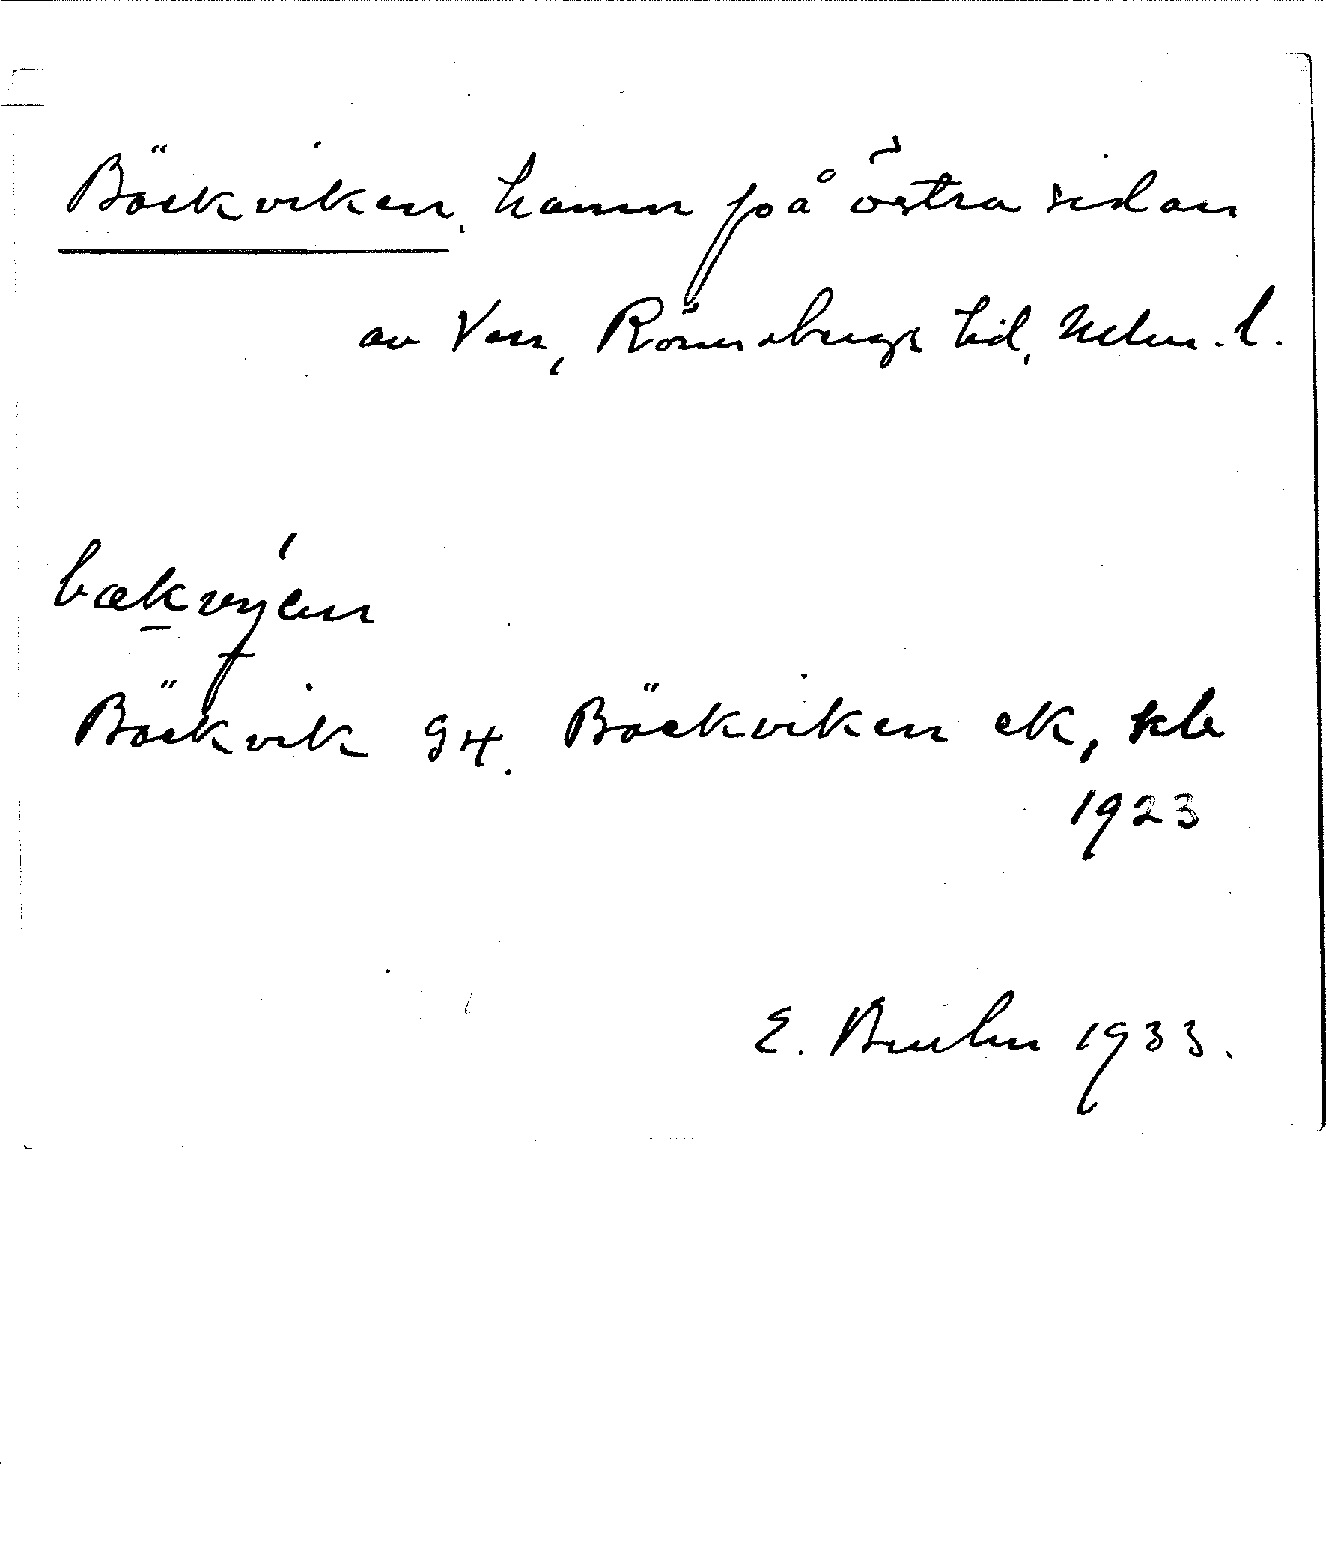 Bäckviken, hamn på östra sidan
av Ven, Rönnebergs hd, Mlm. l.
bækvýen
Bäckvik gk. Bäckviken ek, skb
1923
E. Bruhn 1933.